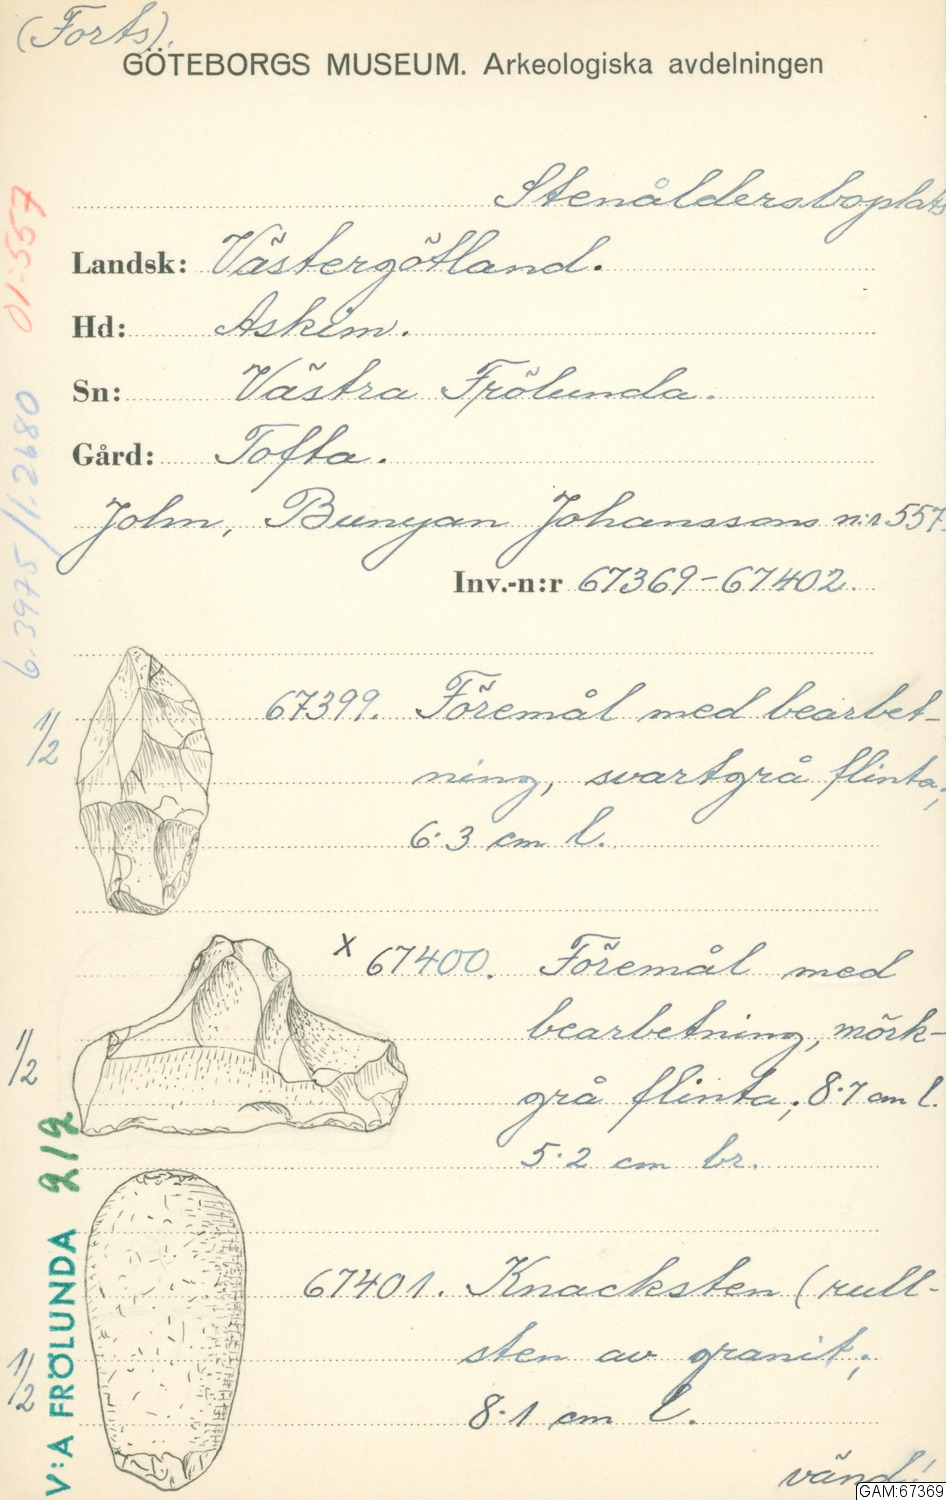 (Forts).
GÖTEBORGS MUSEUM. Arkeologiska avdelningen
Stenåldersboplats
Landsk: Västergötland.
Hd: Askim.
Sn: Västra Frölunda.
Gård: Tofta.
John, Bunyan Johanssons n:r 557.
Inv.-n:r 67369-67402.
01:557
6.3975/1.2680
1/2
67399. Föremål med bearbet-
ning, svartgrå flinta;
6.3 cm l.
1/2
x 67400. Föremål med
bearbetning, mörk-
grå flinta; 8.7 cm l.
5.2 cm br.
V:A FRÖLUNDA 212
1/2
67401. Knacksten (rull-
sten av granit;
8.1 cm l.
vänd!
GAM:67369